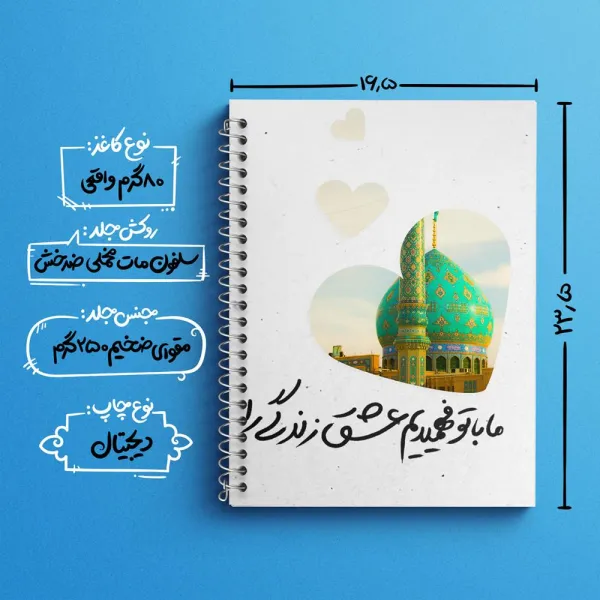 ۱۶٫۵
۲۳٫۵
نوع کاغذ:
۸۰ گرم واقعی
روکش جلد:
سلفون مات مخملی ضدخش
جنس جلد:
مقوای ضخیم ۲۵۰ گرم
نوع چاپ:
دیجیتال
ما با تو فهمیدیم عشق زندگی را